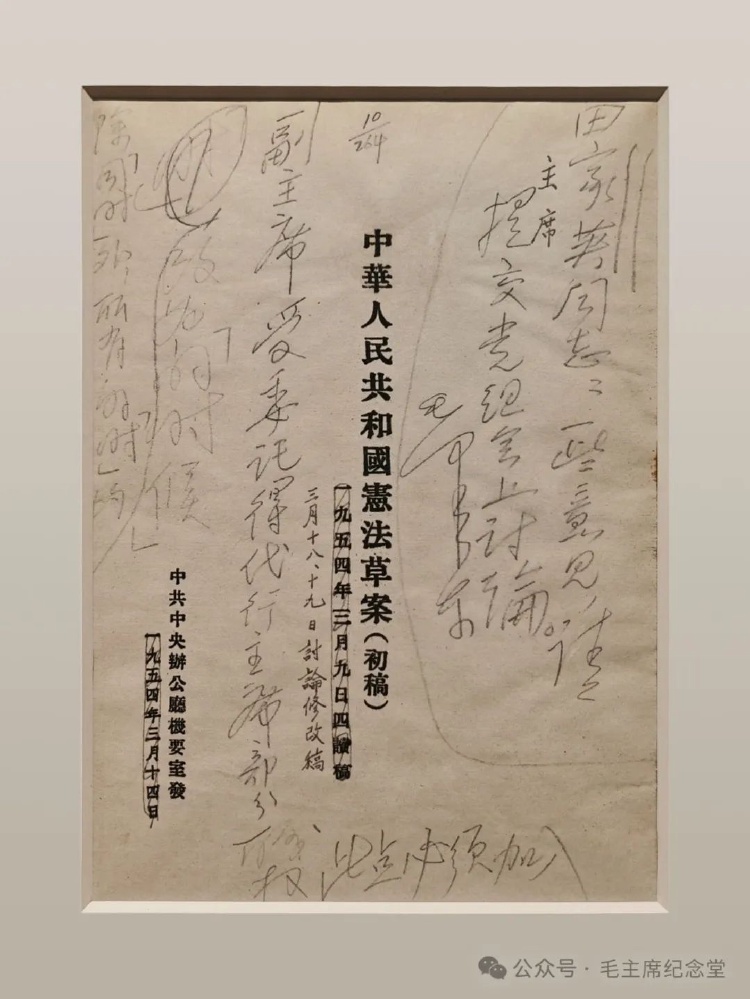 田家英同志：一些意见，请
主席
提交党组会上讨論。
毛泽东
10/264
中華人民共和國憲法草案(初稿)
一九五四年三月九日四讀稿
三月十八、十九日討論修改稿
副主席受委託得代行主席部分职权
此点必须加入
改为「的时候
除「同时」外，所有「时」均
中共中央辦公廳機要室發
一九五四年三月十四日
公众号 · 毛主席纪念堂